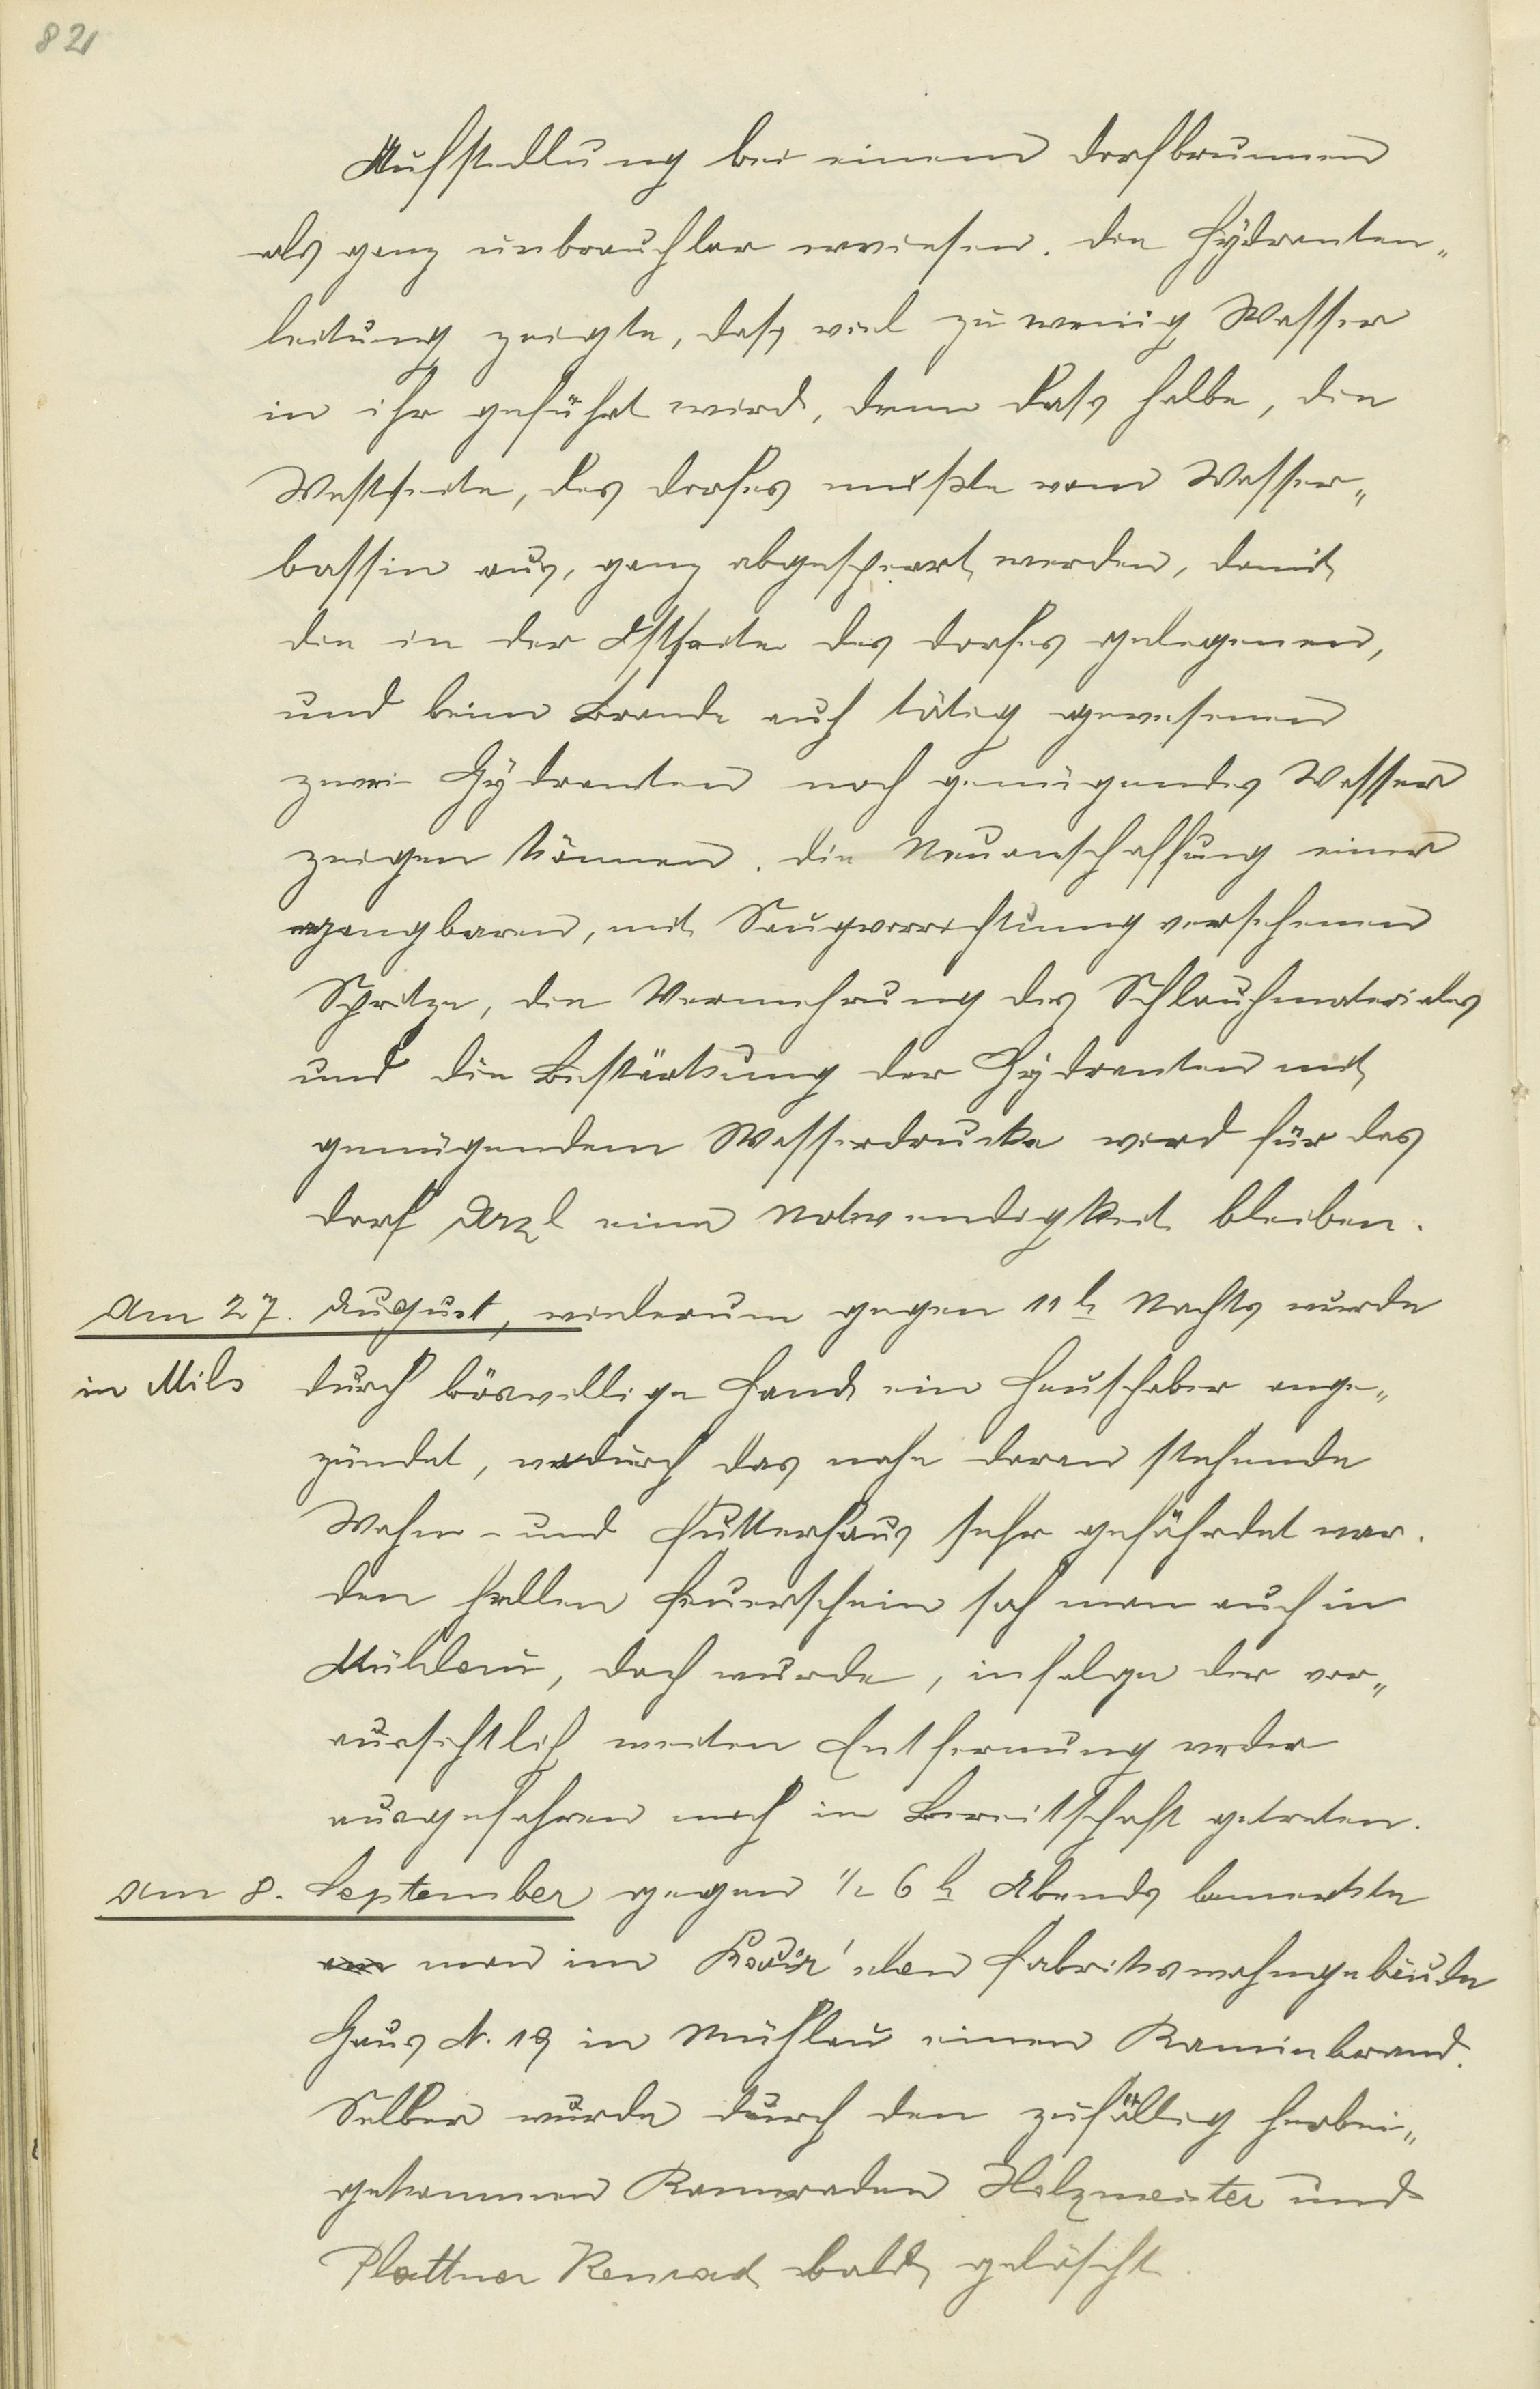 82
Aufstellung bei einem Dorfbrunnen
als ganz unbrauchbar erwiesen. Die Hydranten„
leitung zeigte, dass viel zu wenig Wasser
in ihr geführt wird, denn dass halbe, die
Westseite, des Dorfes mußte vom Wasser„
bassin aus, ganz abgesperrt werden, damit
die in der Ostseite des Dorfes gelegenen,
und beim Brande auch tätig gewesenen
zwei Hydranten noch genügendes Wasser
zeigen können. Die Neuanschaffung einer
gangbaren, mit Saugvorrichtung versehenen
Spritze, die Vermehrung des Schlauchmateriales
und die Bestärkung der Hydranten mit
genügendem Wasserdrucke wird für das
Dorf Arzl eine Notwendigkeit bleiben.
Am 27. August, wiederum gegen 11 h Nachts wurde
in Mils durch böswillige Hand ein Heuschober ange„
zündet, wodurch das nahe daran stehende
Wohn- und Futterhaus sehr gefährdet war.
Den hellen Feuerschein sah man auch in
Mühlau, doch wurde, infolge der vor„
aussichtlich weiten Entfernung weder
ausgefahren noch in Bereitschaft getreten.
Am 8. September gegen ½ 6 h Abends bemerkte
man im Fabrikswohngebäude
Haus N. 19 in Mühlau einen Kaminbrand.
Selber wurde durch den zufällig herbei„
gekommenen Kameraden Holzmeister und
Plattner Konrad bald gelöscht.